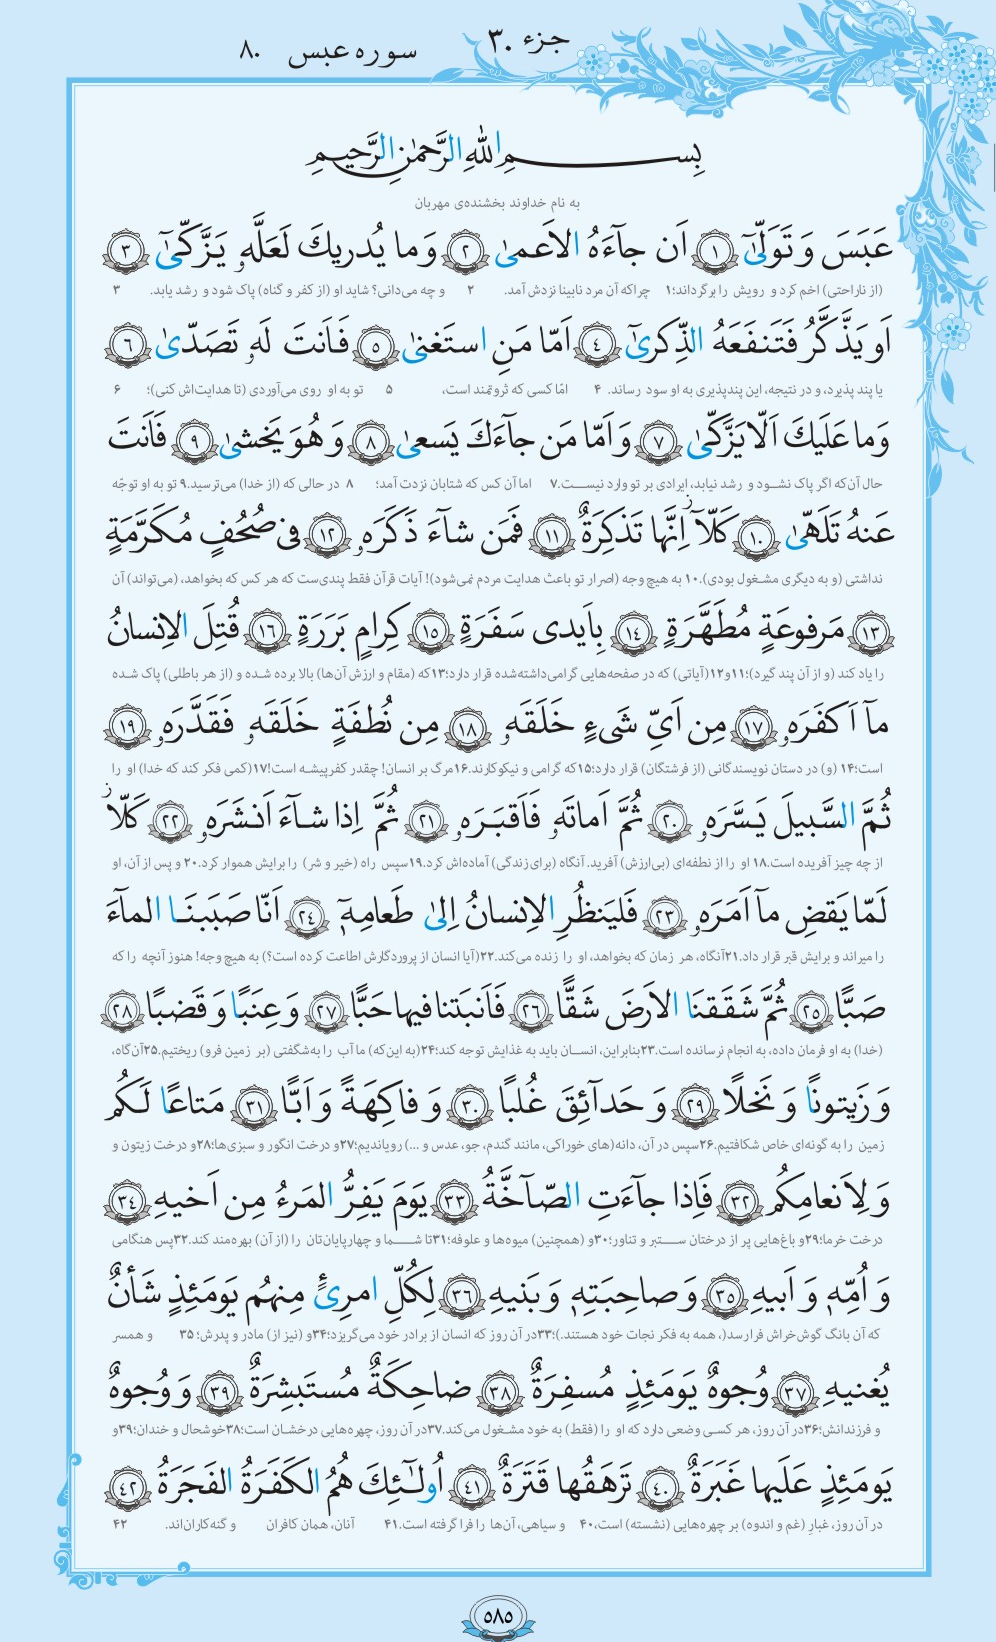 جزء ۳۰
سوره عبس ۸۰
بِسمِ اللهِ الرَّحمٰنِ الرَّحیمِ
به نام خداوند بخشنده‌ی مهربان
عَبَسَ وَ تَوَلّیٰٓ ﴿۱﴾ اَن جآءَهُ الاَعمیٰ ﴿۲﴾ وَ ما یُدریكَ لَعَلَّهٗ یَزَّكّیٰٓ ﴿۳﴾
(از ناراحتی) اخم کرد و رویش را برگرداند؛۱ چراکه آن مرد نابینا نزدش آمد. ۲ و چه می‌دانی؟ شاید او (از کفر و گناه) پاک شود و رشد یابد. ۳
اَو یَذَّكَّرُ فَتَنفَعَهُ الذِّكریٰٓ ﴿۴﴾ اَمّا مَنِ استَغنیٰ ﴿۵﴾ فَاَنتَ لَهٗ تَصَدّیٰ ﴿۶﴾
یا پند پذیرد، و در نتیجه، این پندپذیری به او سود رساند. ۴ امّا کسی که ثروتمند است، ۵ تو به او روی می‌آوردی (تا هدایت‌اش کنی)؛ ۶
وَ ما عَلَیكَ اَلّا یَزَّكّیٰ ﴿۷﴾ وَ اَمّا مَن جآءَكَ یَسعیٰ ﴿۸﴾ وَ هُوَ یَخشیٰ ﴿۹﴾ فَاَنتَ
حال آن‌که اگر پاک نشـود و رشد نیابد، ایرادی بر تو وارد نیسـت.۷ اما آن کس که شتابان نزدت آمد؛ ۸ در حالی که (از خدا) می‌ترسید.۹ تو به او توجّه
عَنهُ تَلَهّیٰ ﴿۱۰﴾ كَلّآ اِنَّها تَذكِرَةٌ ﴿۱۱﴾ فَمَن شآءَ ذَكَرَهٗ ﴿۱۲﴾ فی صُحُفٍ مُكَرَّمَةٍ
نداشتی (و به دیگری مشـغول بودی).۱۰ به هیچ وجه (اصرار تو باعث هدایت مردم نمی‌شود)! آیات قرآن فقط پندی‌ست که هر کس که بخواهد، (می‌تواند) آن
﴿۱۳﴾ مَرفوعَةٍ مُطَهَّرَةٍ ﴿۱۴﴾ بِاَیدی سَفَرَةٍ ﴿۱۵﴾ كِرامٍ بَرَرَةٍ ﴿۱۶﴾ قُتِلَ الاِنسانُ
را یاد کند (و از آن پند گیرد)؛۱۱و۱۲(آیاتی) که در صفحه‌هایی گرامی‌داشته‌شده قرار دارد؛۱۳که (مقام و ارزش آن‌ها) بالا برده شده و (از هر باطلی) پاک شده
مآ اَكفَرَهٗ ﴿۱۷﴾ مِن اَیِّ شَیءٍ خَلَقَهٗ ﴿۱۸﴾ مِن نُطفَةٍ خَلَقَهٗ فَقَدَّرَهٗ ﴿۱۹﴾
است؛۱۴ (و) در دستان نویسندگانی (از فرشتگان) قرار دارد؛۱۵که گرامی و نیکوکارند.۱۶مرگ بر انسان! چقدر کفرپیشـه است!۱۷(کمی فکر کند که خدا) او را
ثُمَّ السَّبیلَ یَسَّرَهٗ ﴿۲۰﴾ ثُمَّ اَماتَهٗ فَاَقبَرَهٗ ﴿۲۱﴾ ثُمَّ اِذا شآءَ اَنشَرَهٗ ﴿۲۲﴾ كَلّا
از چه چیز آفریده است.۱۸ او را از نطفه‌ای (بی‌ارزش) آفرید. آنگاه (برای زندگی) آماده‌اش کرد.۱۹سپس راه (خیر و شر) را برایش هموار کرد.۲۰ و پس از آن، او
لَمّا یَقضِ مآ اَمَرَهٗ ﴿۲۳﴾ فَلیَنظُرِ الاِنسانُ اِلیٰ طَعامِهٖٓ ﴿۲۴﴾ اَنّا صَبَبنَا المآءَ
را میراند و برایش قبر قرار داد.۲۱آنگاه، هر زمان که بخواهد، او را زنده می‌کند.۲۲(آیا انسان از پروردگارش اطاعت کرده است؟) به هیچ وجه! هنوز آنچه را که
صَبًّا ﴿۲۵﴾ ثُمَّ شَقَقنَا الاَرضَ شَقًّا ﴿۲۶﴾ فَاَنبَتنا فیها حَبًّا ﴿۲۷﴾ وَ عِنَبًا وَ قَضبًا ﴿۲۸﴾
(خدا) به او فرمان داده، به انجام نرسانده است.۲۳بنابراین، انسـان باید به غذایش توجه کند؛۲۴(به این‌که) ما آب را به‌شگفتی (بر زمین فرو) ریختیم.۲۵آن‌گاه،
وَ زَیتونًا وَ نَخلًا ﴿۲۹﴾ وَ حَدآئِقَ غُلبًا ﴿۳۰﴾ وَ فاكِهَةً وَ اَبًّا ﴿۳۱﴾ مَتاعًا لَكُم
زمین را به گونه‌ای خاص شکافتیم.۲۶سپس در آن، دانه(های خوراکی، مانند گندم، جو، عدس و ...) رویاندیم؛۲۷و درخت انگور و سبزی‌ها؛۲۸و درخت زیتون و
وَ لِاَنعامِكُم ﴿۳۲﴾ فَاِذا جآءَتِ الصّآخَّةُ ﴿۳۳﴾ یَومَ یَفِرُّ المَرءُ مِن اَخیهِ ﴿۳۴﴾
درخت خرما؛۲۹و باغ‌هایی پر از درختان سـتبر و تناور؛۳۰و (همچنین) میوه‌ها و علوفه؛۳۱تا شـما و چهارپایان‌تان را (از آن) بهره‌مند کند.۳۲پس هنگامی
وَ اُمِّهٖ وَ اَبیهِ ﴿۳۵﴾ وَ صاحِبَتِهٖ وَ بَنیهِ ﴿۳۶﴾ لِكُلِّ امرِئٍ مِنهُم یَومَئِذٍ شَأنٌ
که آن بانگ گوش‌خراش فرارسد(، همه به فکر نجات خود هستند.)؛۳۳در آن روز که انسان از برادر خود می‌گریزد؛۳۴و (نیز از) مادر و پدرش؛ ۳۵ و همسر
یُغنیهِ ﴿۳۷﴾ وُجوهٌ یَومَئِذٍ مُسفِرَةٌ ﴿۳۸﴾ ضاحِكَةٌ مُستَبشِرَةٌ ﴿۳۹﴾ وَ وُجوهٌ
و فرزندانش؛۳۶در آن روز، هر کسـی وضعی دارد که او را (فقط) به خود مشـغول می‌کند.۳۷در آن روز، چهره‌هایی درخشـان است؛۳۸خوشحال و خندان؛۳۹و
یَومَئِذٍ عَلَیها غَبَرَةٌ ﴿۴۰﴾ تَرهَقُها قَتَرَةٌ ﴿۴۱﴾ اُولٰٓئِكَ هُمُ الكَفَرَةُ الفَجَرَةُ ﴿۴۲﴾
در آن روز، غبارِ (غم و اندوه) بر چهره‌هایی (نشسته) است،۴۰ و سیاهی، آن‌ها را فرا گرفته است.۴۱ آنان، همان کافران و گنه‌کاران‌اند. ۴۲
۵۸۵